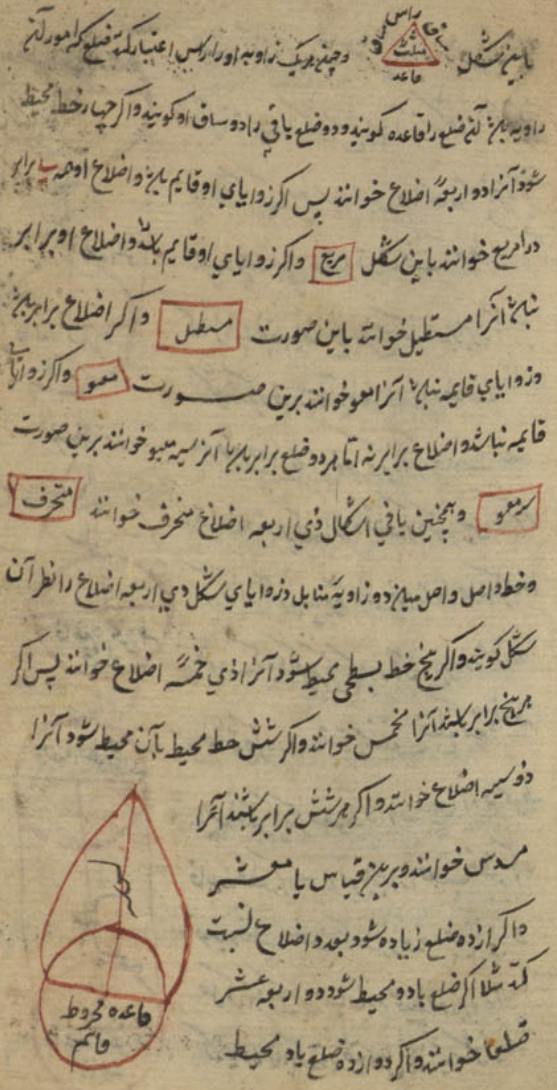 باین شکل راس ساق ساق مثلث قاعده و چون هر یک زاویه او را راس اعتبار کنند ضلع که موتر آن
زاویه باشد آن ضلع را قاعده گویند و دو ضلع باقی را دو ساق او گویند و اگر چهار خط محیط
شود آنرا ذو اربعة اضلاع خوانند پس اگر زوایای او قایم باشد و اضلاع او همه برابر
درا مربع خوانند باین شکل مربع و اگر زوایای او قایم باشد و اضلاع او برابر
نباشد آنرا مستطیل خوانند باین صورت مستطیل و اگر اضلاع برابر باشد
و زوایای قایمه نباشد آنرا معین خوانند برین صورت معین و اگر زوایا
قایمه نباشد و اضلاع برابر نه اما هر دو ضلع برابر باشد آنرا شبیه معین خوانند برین صورت
شبیه معین و همچنین باقی اشکال ذی اربعه اضلاع منحرف خوانند منحرف
و خط واصل میان دو زاویه متقابل در زوایای شکل ذی اربعه اضلاع را قطر آن
شکل گویند و اگر پنج خط بسطحی محیط شود آنرا ذی خمسه اضلاع خوانند پس اگر
هر پنج برابر باشند آنرا مخمس خوانند و اگر شش خط محیط بآن محیط شود آنرا
ذو سته اضلاع خوانند و اگر هر شش برابر باشند آنرا
مسدس خوانند و برین قیاس تا معشر
و اگر از ده ضلع زیاده شود بعدد اضلاع نسبت
کنند مثلا اگر ضلع یازده محیط شود ذو اربعه عشر
ضلعا خوانند و اگر دوازده ضلع یا محیط
قاعده مخروط
قائم